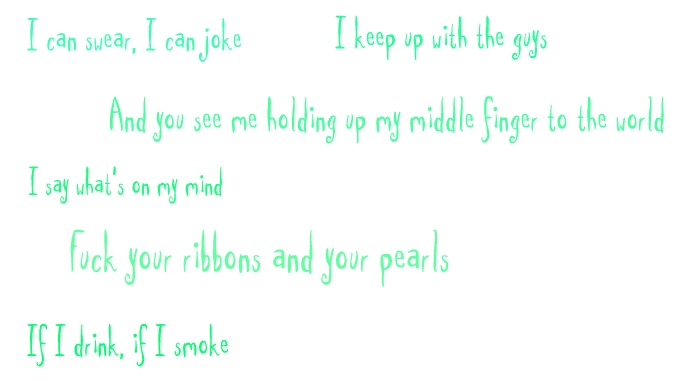 I can swear, I can joke
I keep up with the guys
And you see me holding up my middle finger to the world
I say what's on my mind
Fuck your ribbons and your pearls
If I drink, if I smoke